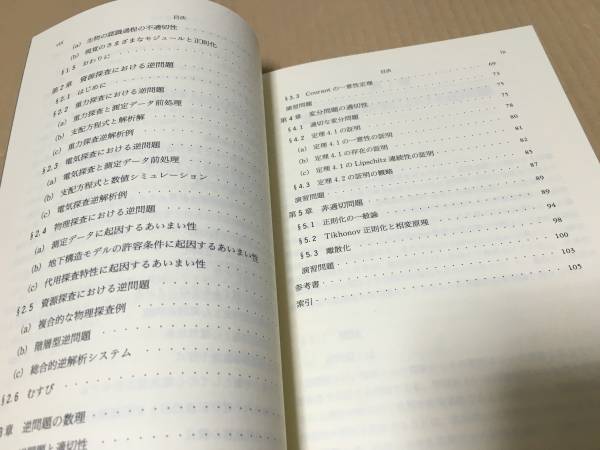 viii 目次
(a) 生物の認識過程の不適切性
(b) 視覚のさまざまなモジュールと正則化
§1.5 おわりに
第2章 資源探査における逆問題
§2.1 はじめに
§2.2 重力探査における逆問題
(a) 重力探査と測定データ前処理
(b) 支配方程式と解析解
(c) 重力探査逆解析例
§2.3 電気探査における逆問題
(a) 電気探査と測定データ前処理
(b) 支配方程式と数値シミュレーション
(c) 電気探査逆解析例
§2.4 物理探査における逆問題
(a) 測定データに起因するあいまい性
(b) 地下構造モデルの許容条件に起因するあいまい性
(c) 代用探査特性に起因するあいまい性
§2.5 資源探査における逆問題
(a) 複合的な物理探査例
(b) 階層型逆問題
(c) 総合的逆解析システム
§2.6 むすび
章 逆問題の数理
問題と適切性
目次 ix
§3.3 Courant の一意性定理 69
演習問題 73
第4章 変分問題の適切性 75
§4.1 適切な変分問題 75
§4.2 定理4.1の証明 78
(a) 定理4.1の一意性の証明
(b) 定理4.1の存在の証明
(c) 定理4.1の Lipschitz 連続性の証明
§4.3 定理4.2の証明の概略
演習問題 87
第5章 非適切問題 89
§5.1 正則化の一般論 89
§5.2 Tikhonov 正則化と相変原理 94
§5.3 離散化 98
演習問題 100
参考書 103
索引 105